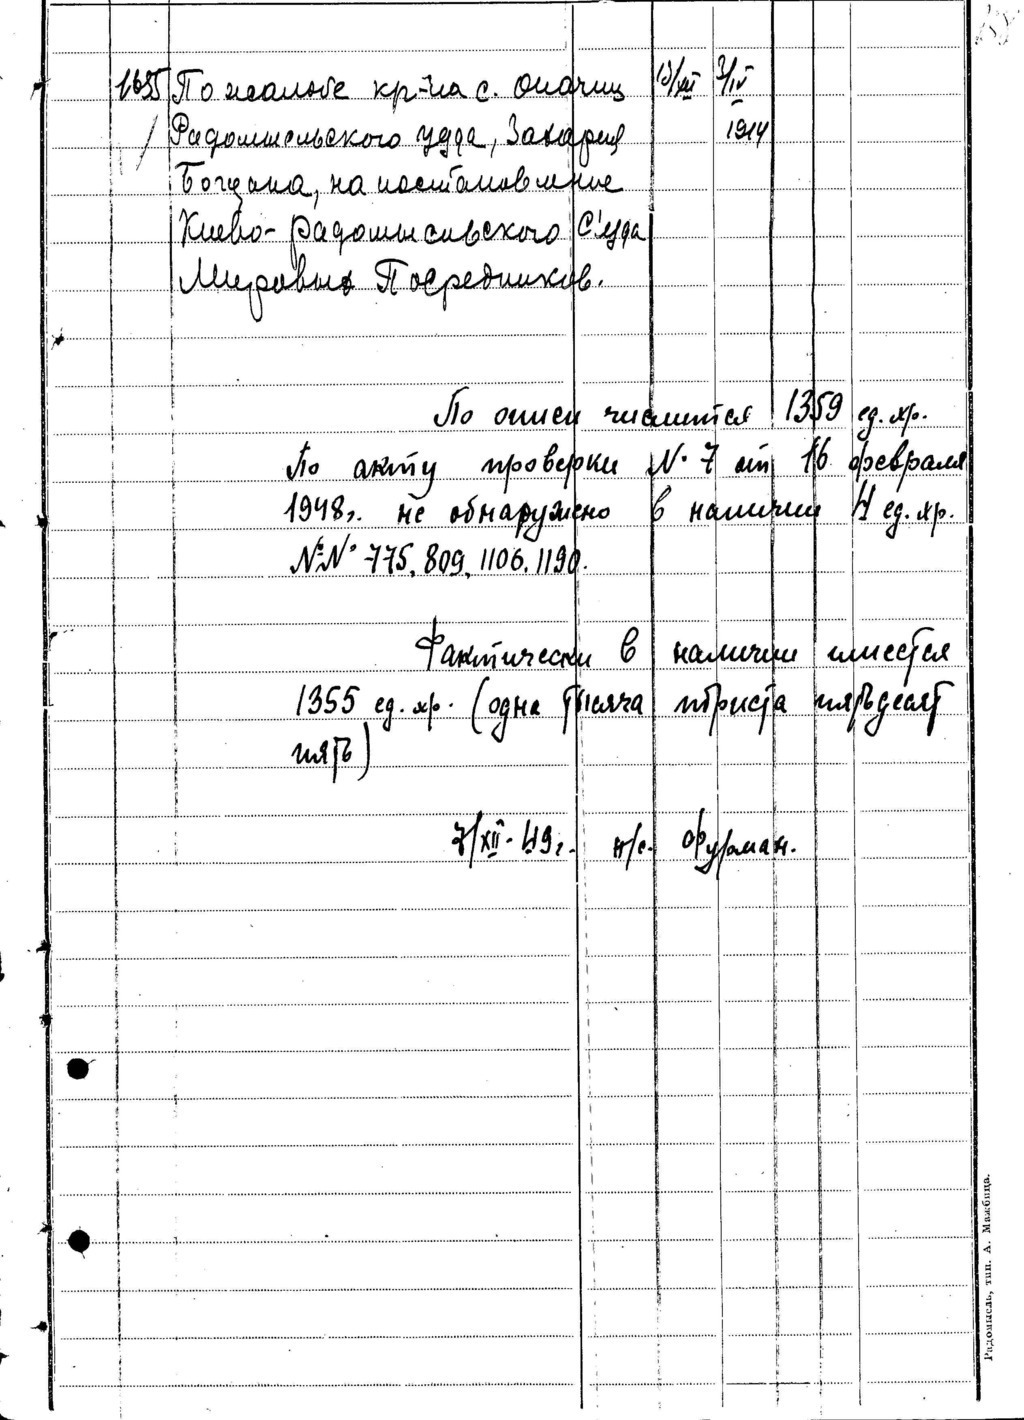 1655 По жалобе кр-на с. Опачиц 13/XII 3/IV
Радомысльского уезда, Захария 1914
Богдана, на постановление
Киево-Радомысльского С'езда
Мировых Посредников.
По описи числится 1359 ед. хр.
По акту проверки № 7 от 16 февраля
1948г. не обнаружено в наличии 4 ед. хр.
№№ 775, 809, 1106, 1190.
Фактически в наличии имеется
1355 ед. хр. (одна тысяча триста пятьдесят
пять)
7/XII-49г. н/с. Фурман.
Радомысль, тип. А. Мажбица.